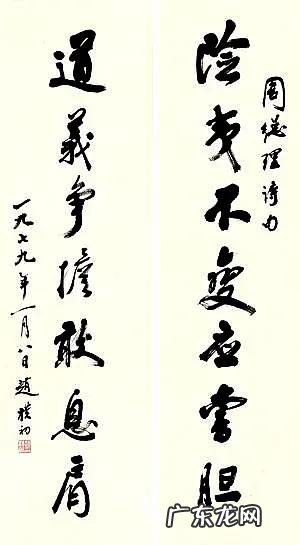 周總理詩句
险夷不变应嘗胆
道義争擔敢息肩
一九七九年一月八日趙樸初
广东龙网